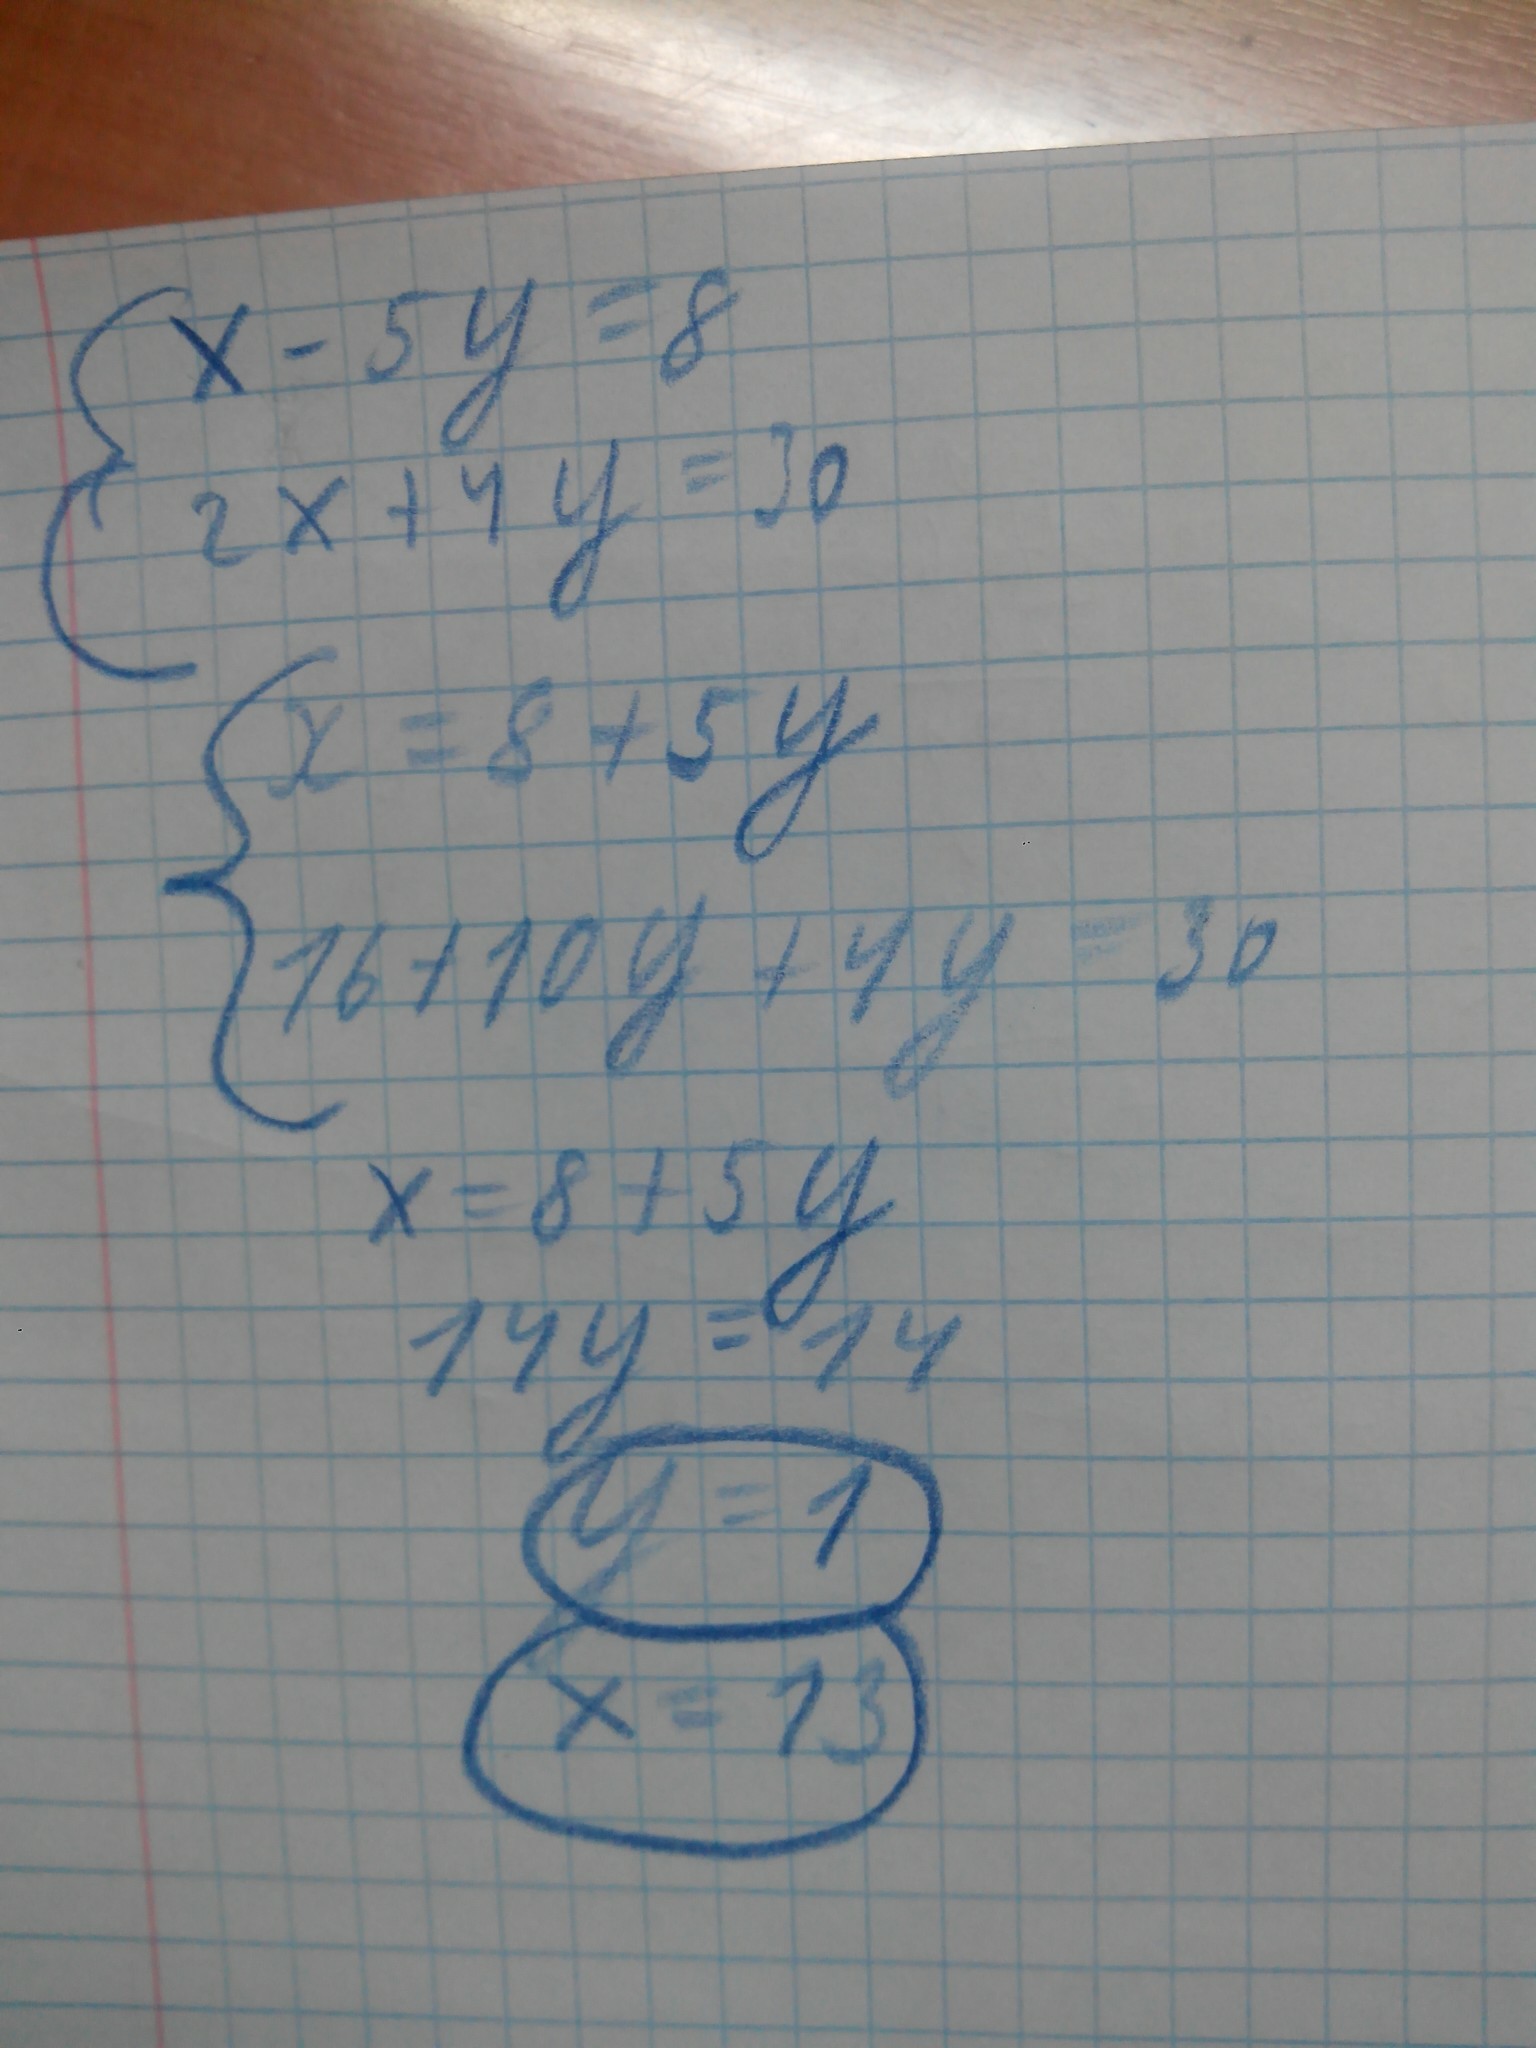 x - 5y = 8
2x + 4y = 30
x = 8 + 5y
16 + 10y + 4y = 30
x = 8 + 5y
14y = 14
y = 1
x = 13